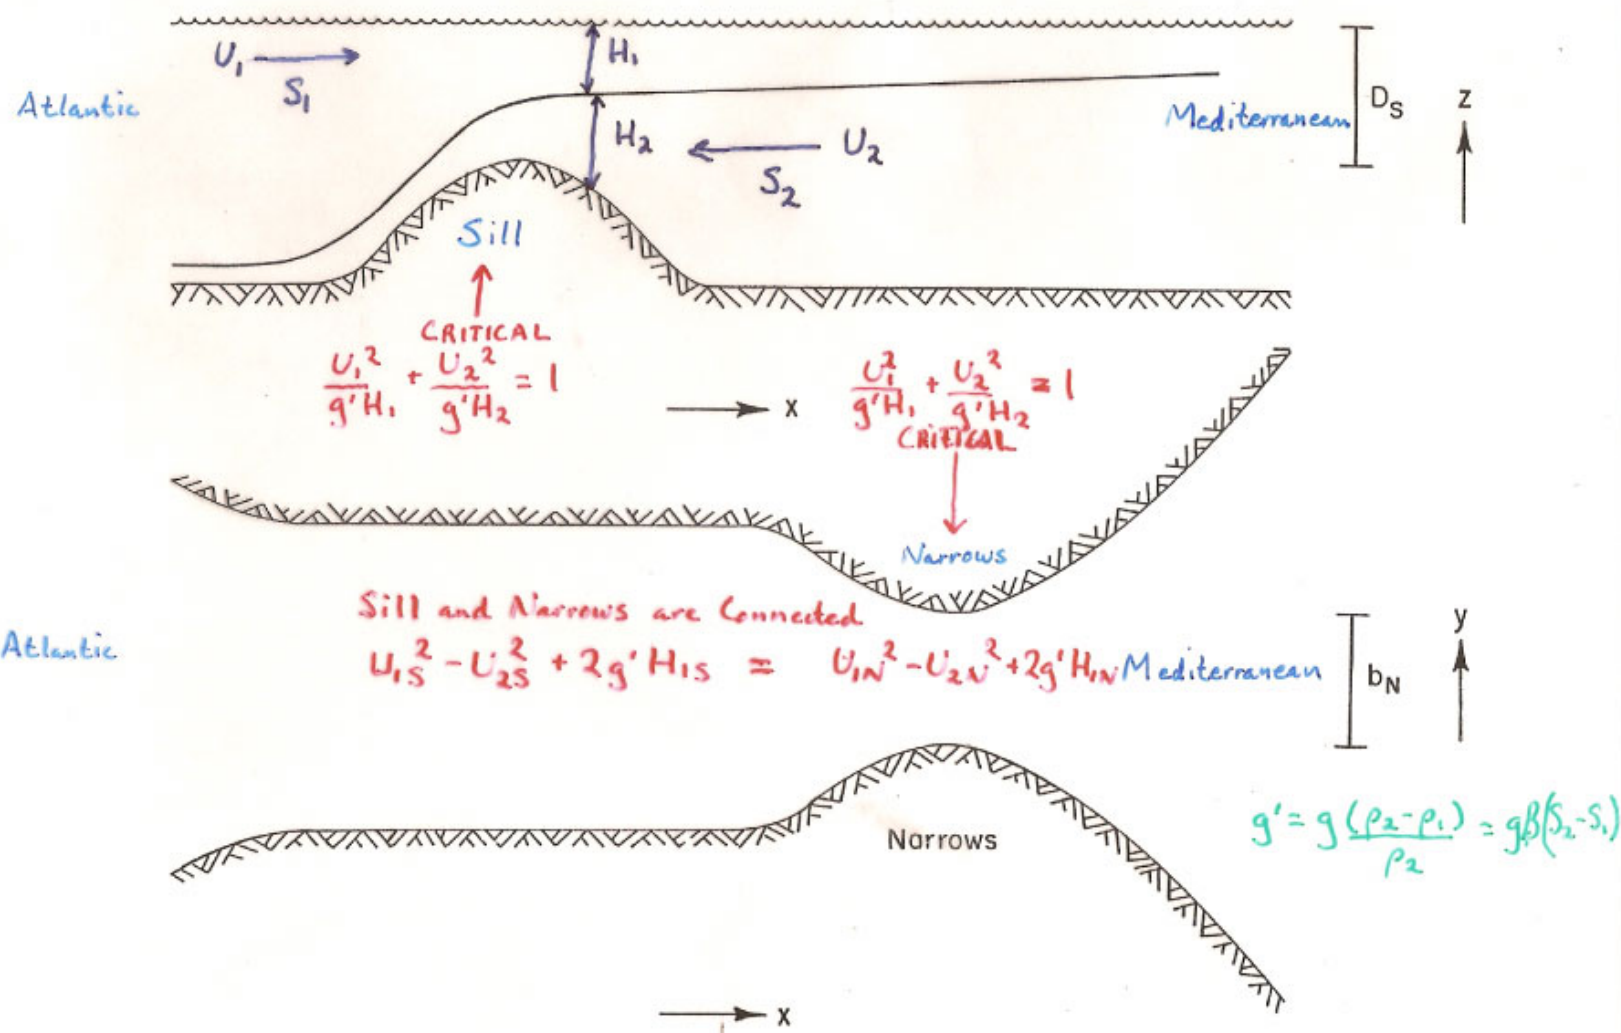 U₁ → H₁
S₁
Atlantic
Mediterranean
D_S
z
H₂
← U₂
S₂
Sill
CRITICAL
U₁²/g'H₁ + U₂²/g'H₂ = 1
→ x
U₁²/g'H₁ + U₂²/g'H₂ = 1
CRITICAL
Narrows
Sill and Narrows are Connected
U₁S² - U₂S² + 2g'H₁S = U₁N² - U₂N² + 2g'H₁N
Atlantic
Mediterranean
b_N
y
Narrows
g' = g (ρ₂-ρ₁)/ρ₂ = gβ(S₂-S₁)
→ x